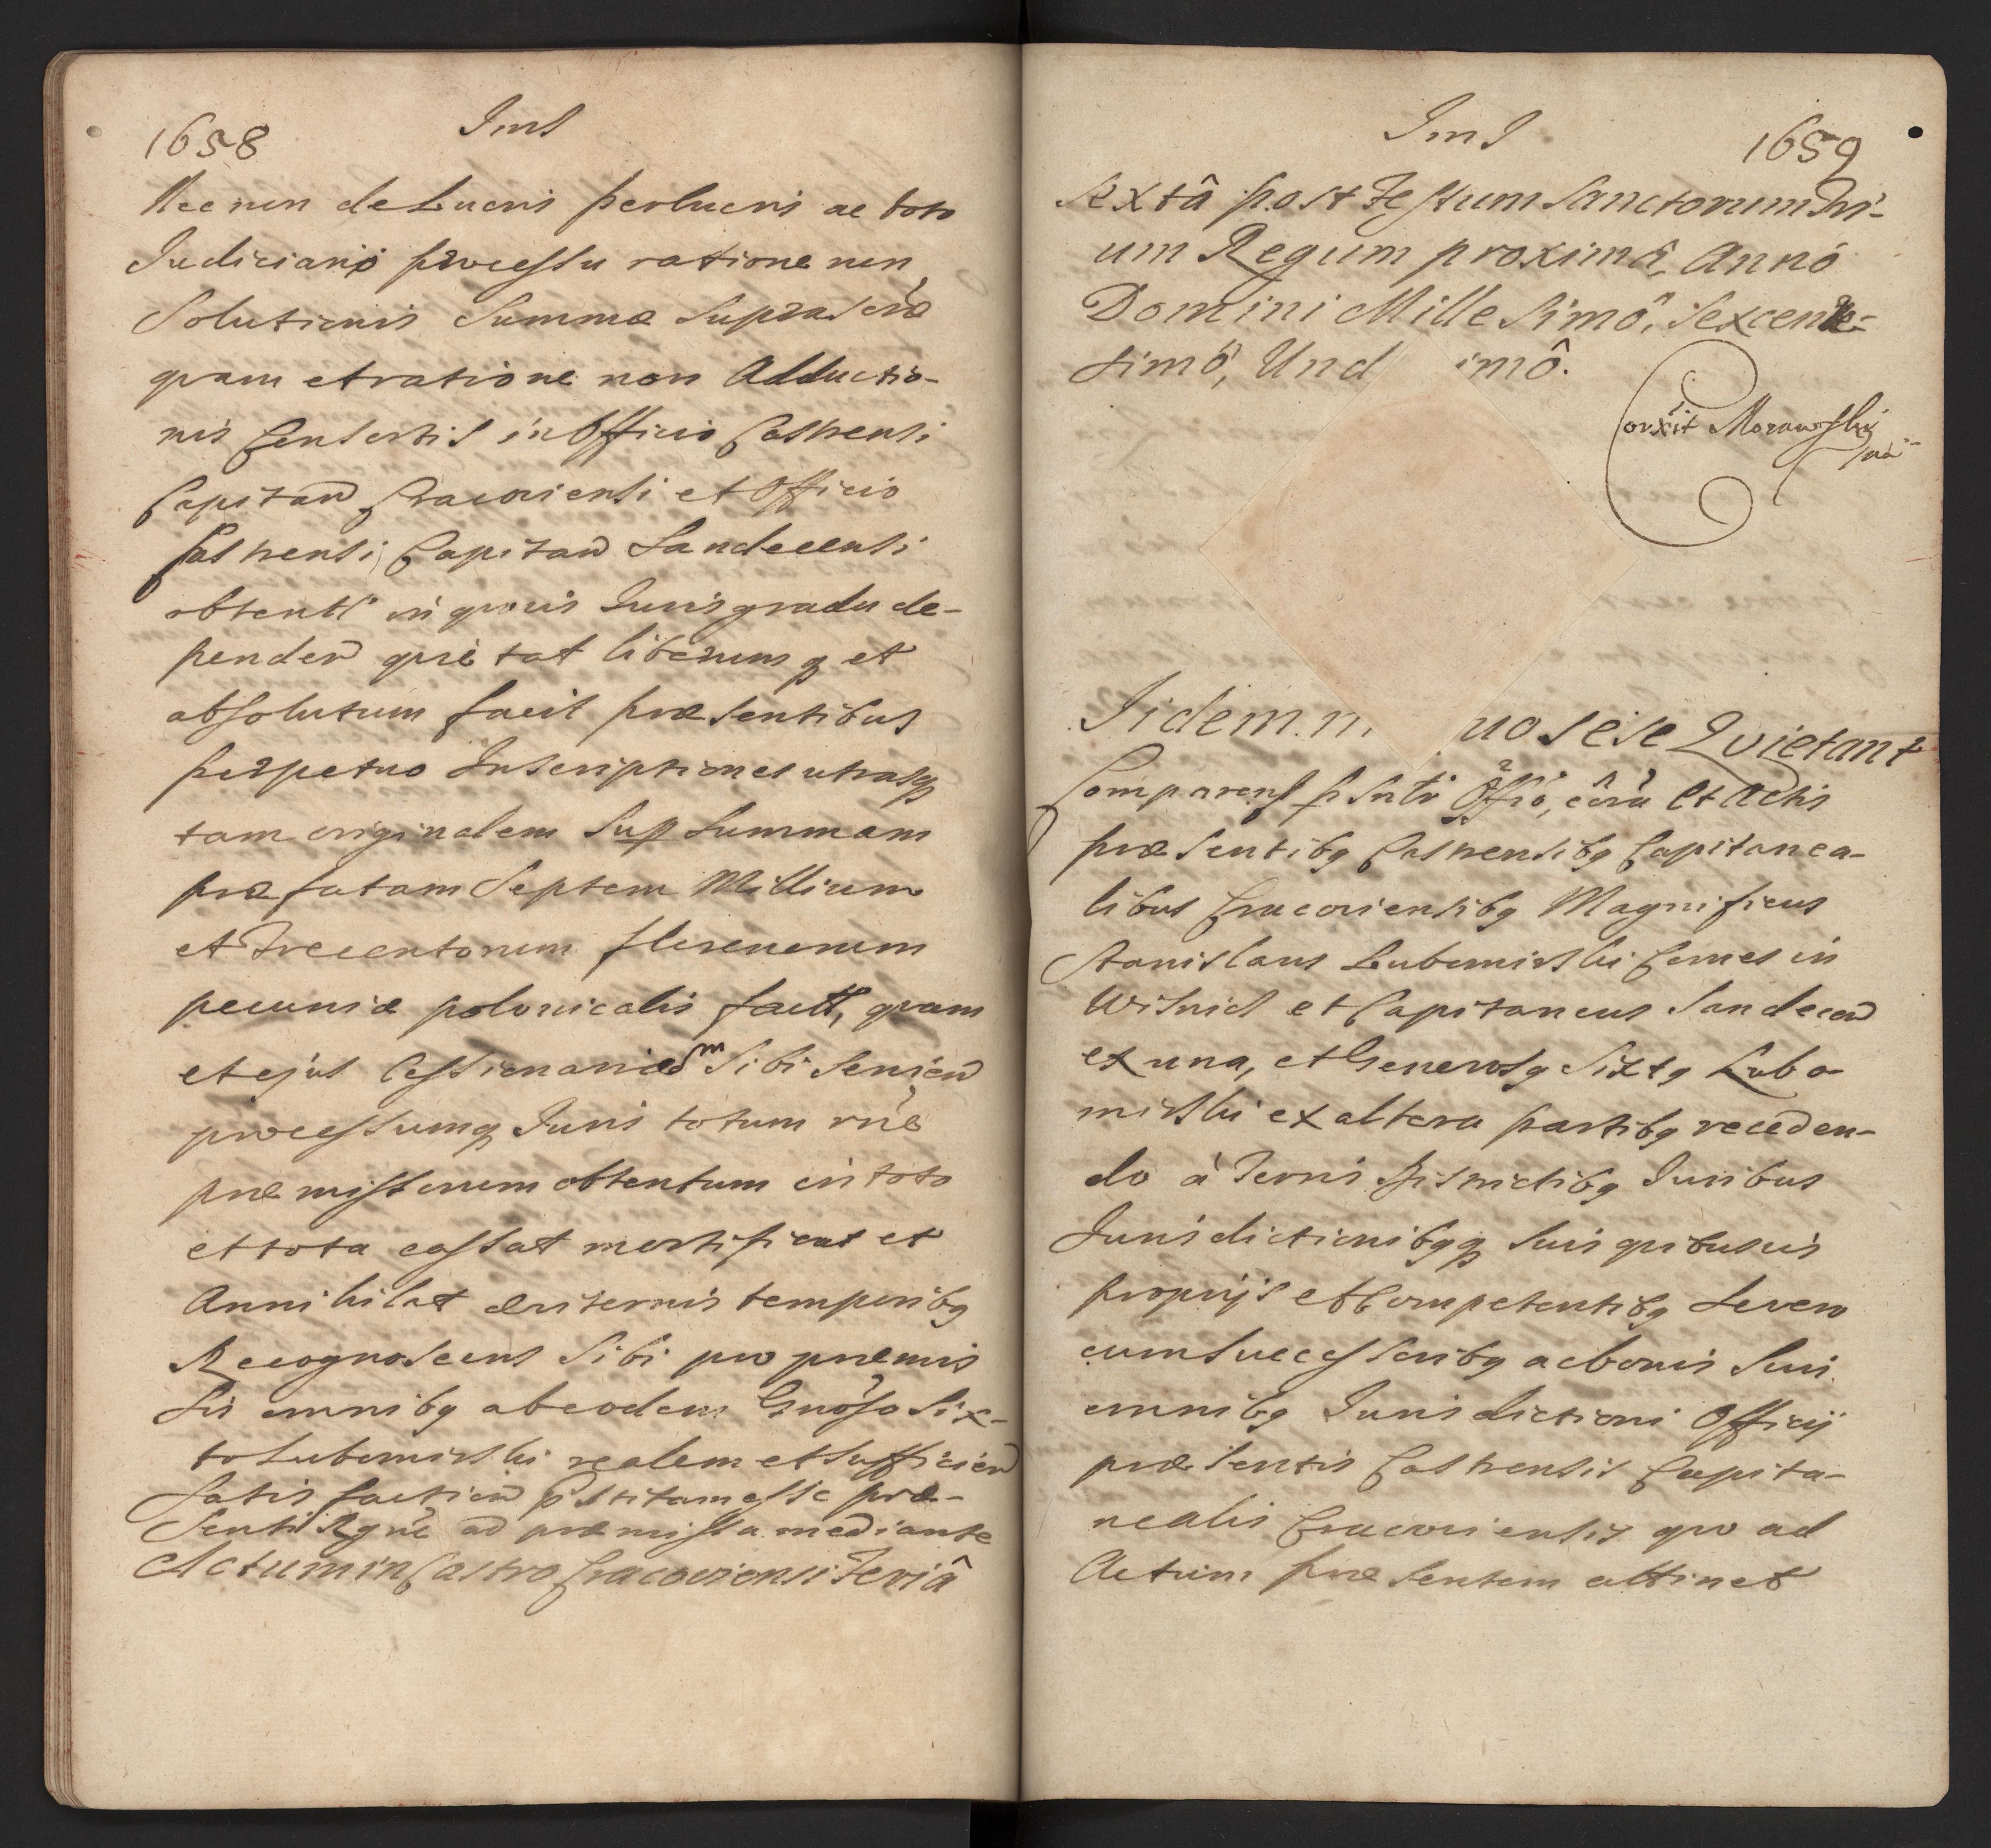 1658
Ims
Necnon de Lucris perlucris ac toto
Judiciario processu ratione non
Solutionis Summæ Suprascræ
quam et ratione non Adductio-
nis Consortis in Officio Castrensi
Capitan Cracoviensi et Officio
Castrensi Capitan Sandecensi
obtent in quovis Juris gradu de-
penden quietat liberumq et
absolutum facit præsentibus
perpetuo Inscriptiones utrasq
tam originalem Sup Summam
præfatam Septem Millium
et Trecentorum florenorum
pecuniæ polonicalis fact, quam
et ejus Cessionariam Sibi Servien
processumq Juris totum rne
præmissorum obtentum in toto
et tota cassat mortificat et
Annihilat æviternis temporibq
Recognoscens Sibi pro præmis
sis omnibq ab eodem Gnoso Six-
to Lubomirski realem et Sufficien
Satisfaction pstitam esse præ-
senti Rgne ad præmissa mediante
Actum in Castro Cracoviensi Feriâ
Ims
1659
Sextâ post Festum Sanctorum Tri-
um Regum proximâ, Annô
Domini Millesimô, Sexcente-
simô, Und imô.
Corrxit Morawski
Iidem m uo sese Quietant
Comparens psnti Offio, cora et Actis
præsentibq Castrensibq Capitanea-
libus Cracoviensibq Magnificus
Stanislaus Lubomirski Comes in
Wisnicz et Capitaneus Sandecen
ex una, et Generosq Sixtq Lubo-
mirski ex altera partibq receden-
do à Terris Districtibq Juribus
Jurisdictionibqq suis quibusvis
proprijs et Competentibq Severo
cum Successoribq ac bonis Suis
omnibq Jurisdictioni Officij
præsentis Castrensis Capita-
nealis Cracoviensis quo ad
Actum præsentem attinet